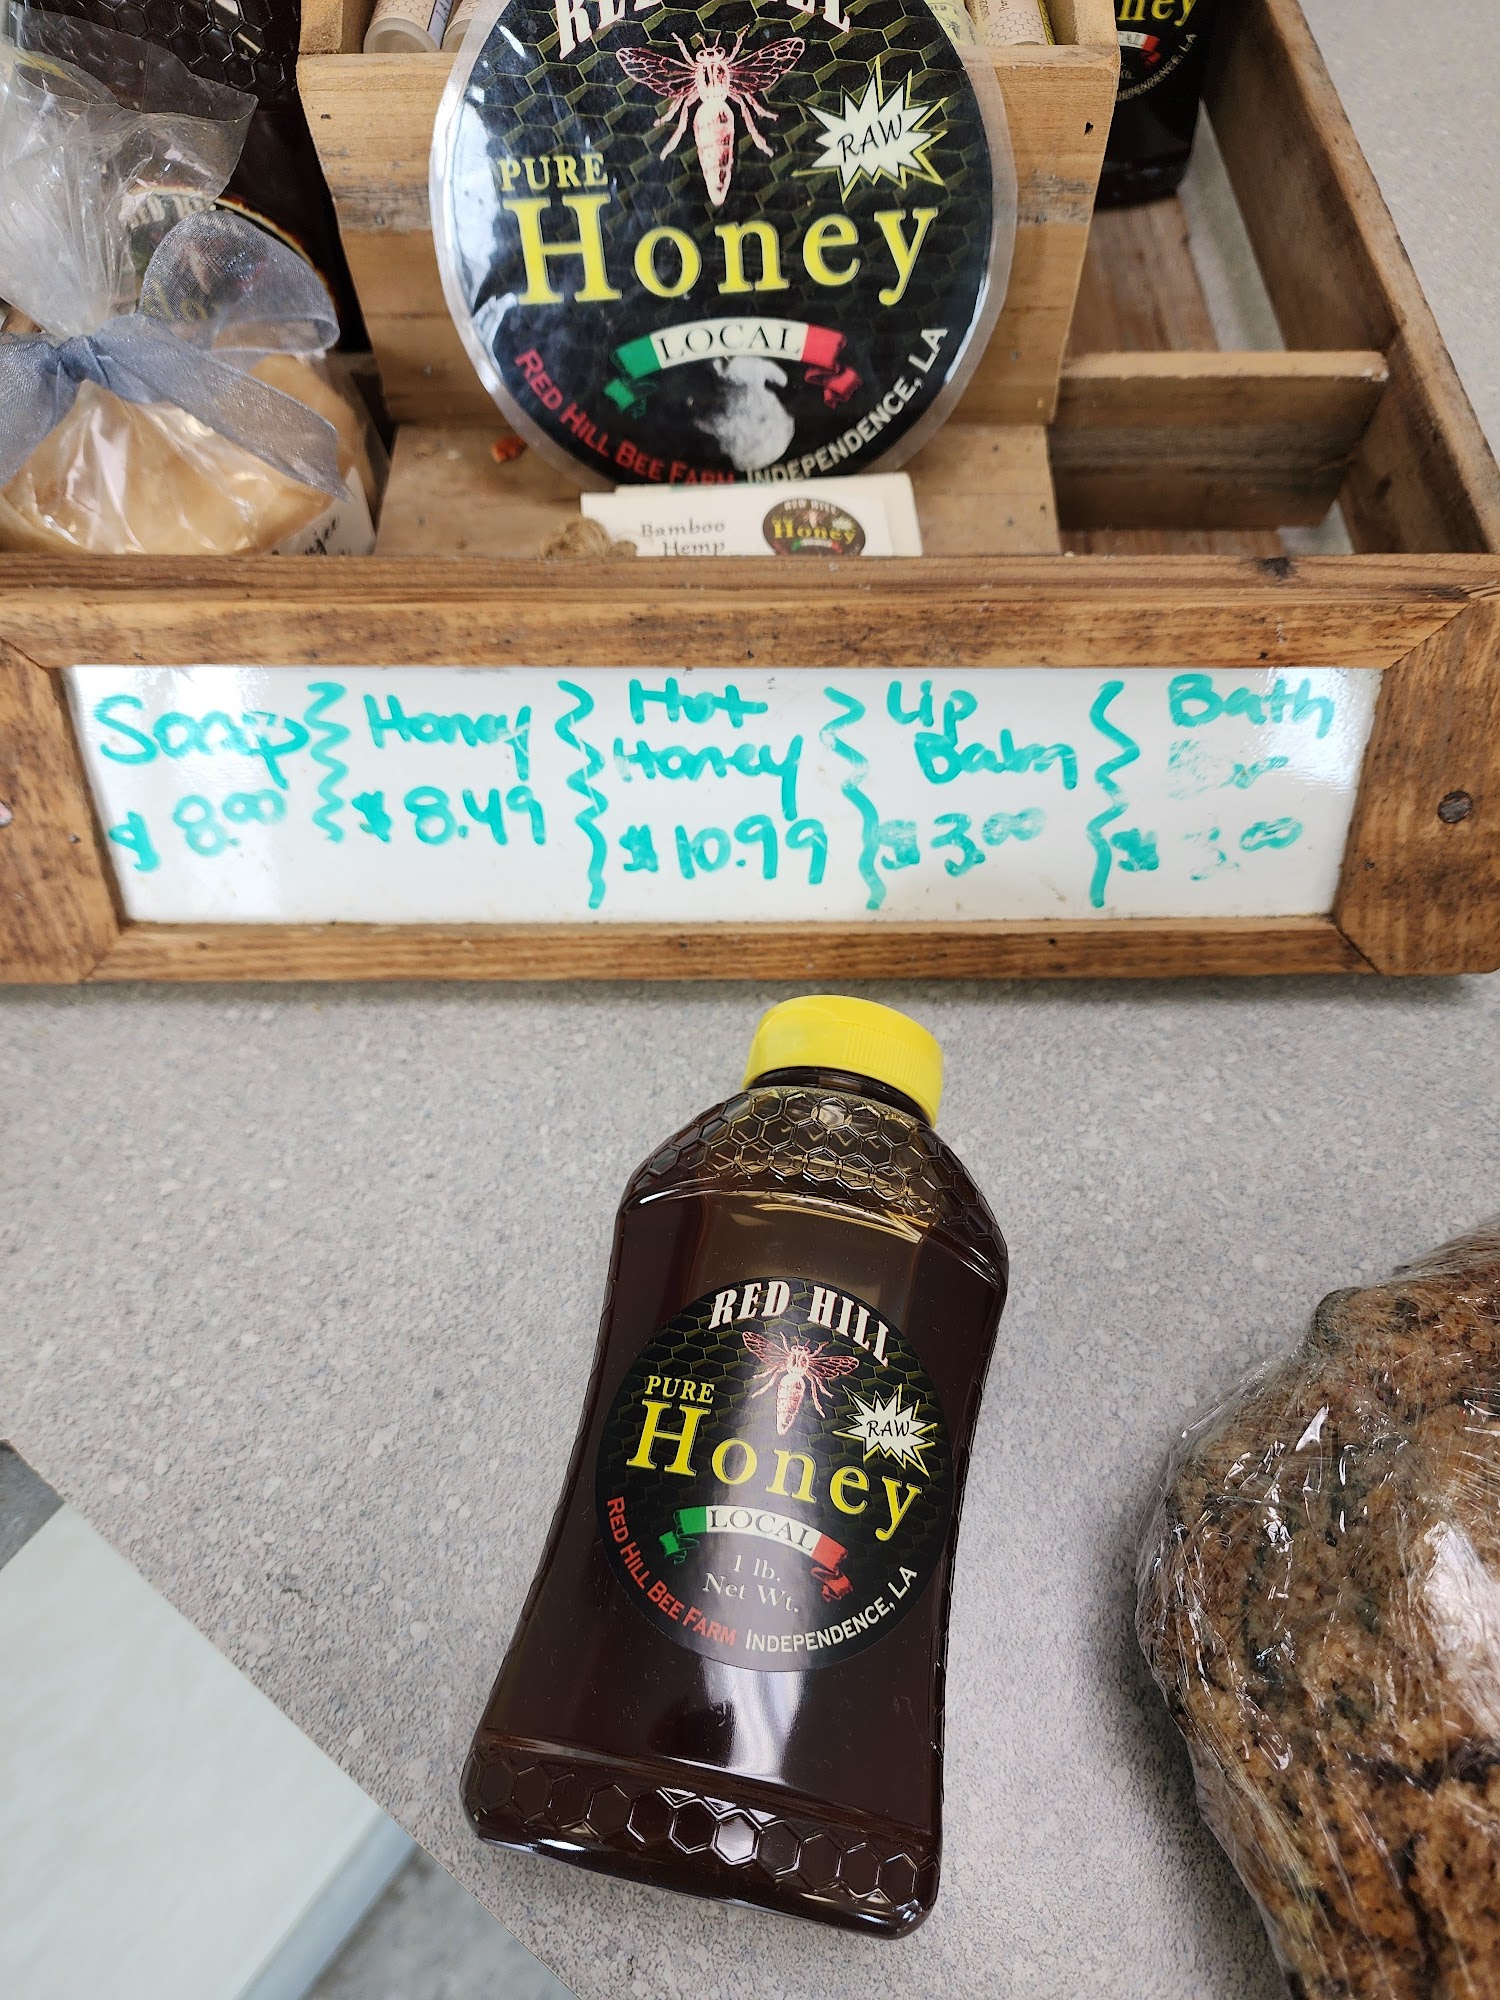 RED HILL
PURE
RAW
Honey
LOCAL
RED HILL BEE FARM INDEPENDENCE, LA
Bamboo
Hemp
RED HILL
Honey
ney
INDEPENDENCE, LA
Soap
$8.00
Honey
$8.49
Hot
Honey
$10.99
Lip
Balm
$3.00
Bath
$3.00
RED HILL
PURE
RAW
Honey
LOCAL
1 lb.
Net Wt.
RED HILL BEE FARM INDEPENDENCE, LA